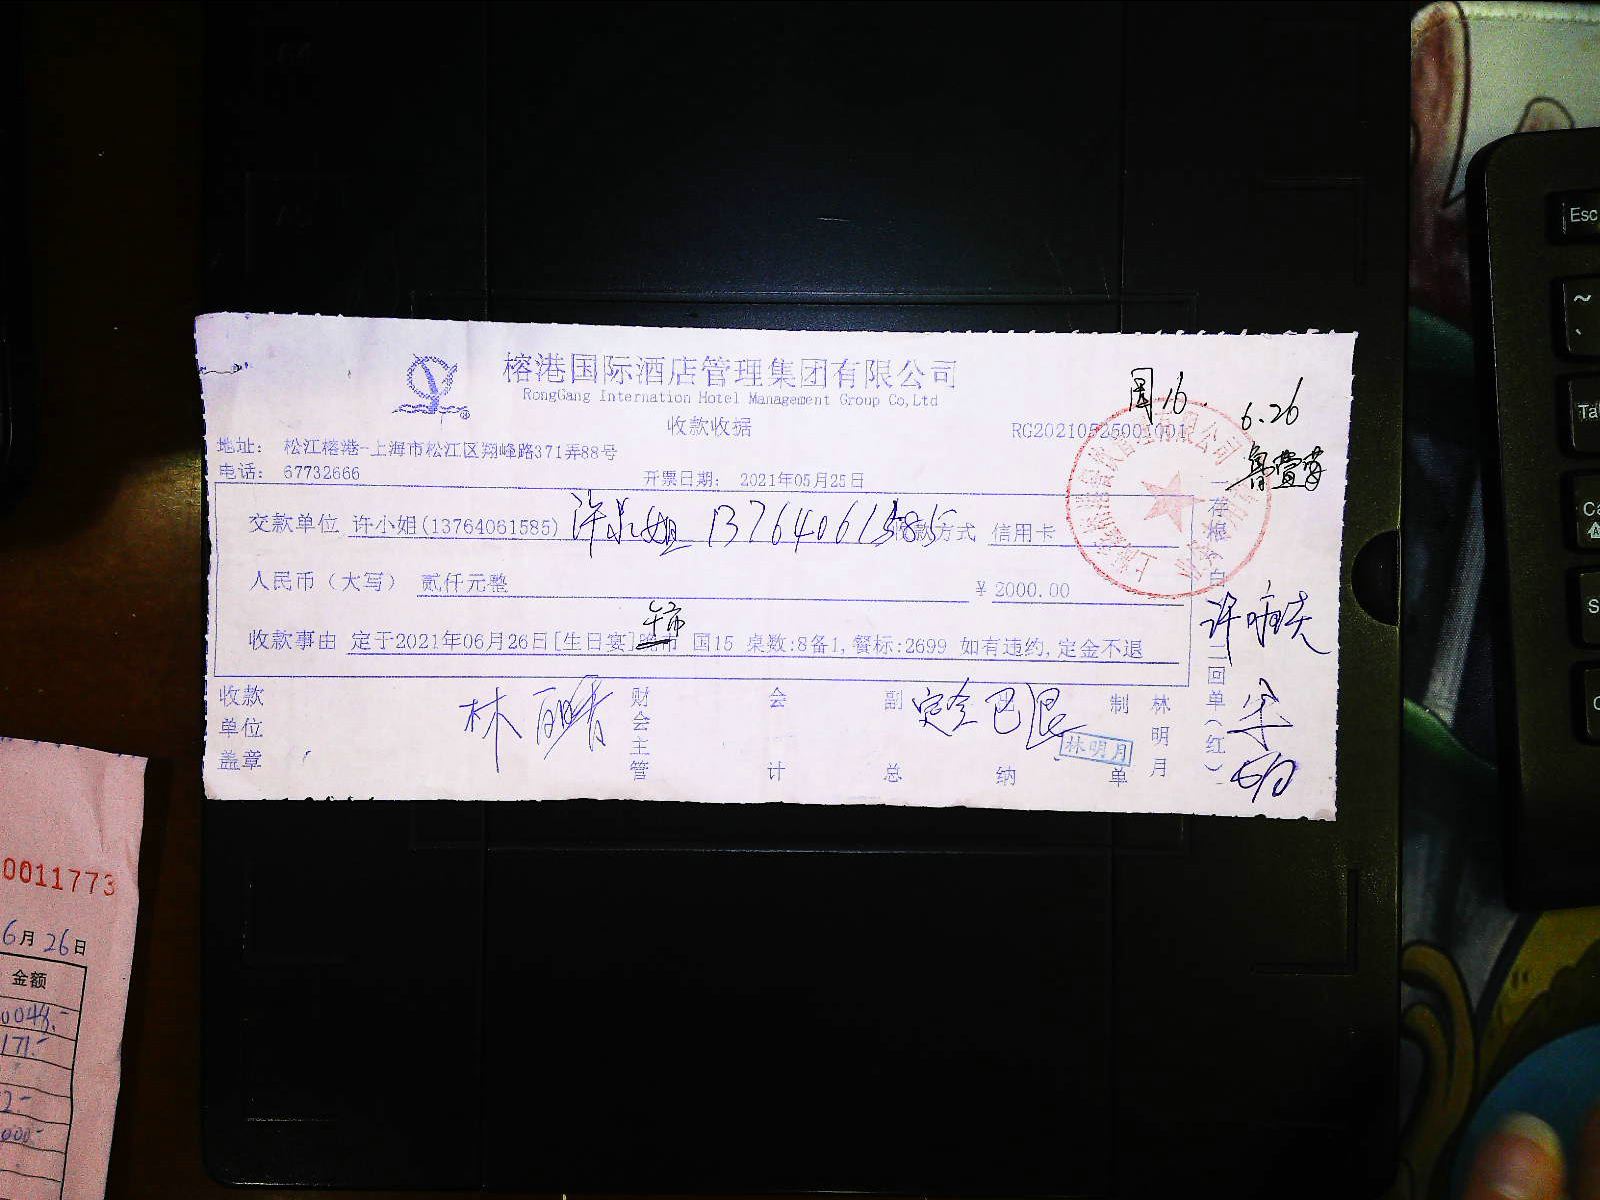 榕港国际酒店管理集团有限公司
RongGang Internation Hotel Management Group Co,Ltd
国16
6.26
收款收据
RG20210525001001
地址: 松江榕港-上海市松江区翔峰路371弄88号
电话: 67732666
开票日期: 2021年05月25日
交款单位 许小姐(13764061585) 许小姐 13764061585 收款方式 信用卡
人民币(大写) 贰仟元整 ¥ 2000.00
午市
收款事由 定于2021年06月26日[生日宴]晚市 国15 桌数:8备1,餐标:2699 如有违约,定金不退
一存根白 二回单(红)
收款单位盖章
林
财会主管
会计
副总
定金已退
纳
制单
林明月
林明月
0011773
6月26日
金额
0048.-
171.-
2-
000-
Esc
~
Ta
Ca
S
C